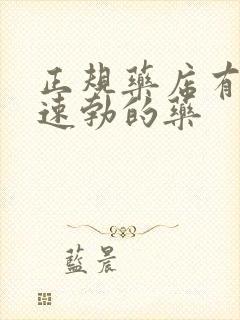 正规藥店有
速勃的藥
藍晨